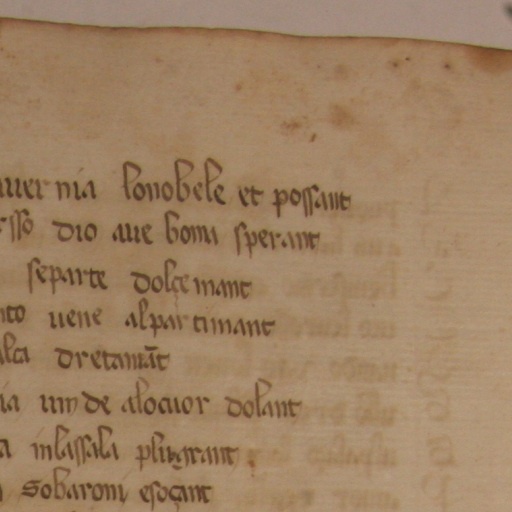 uuernia lonobele et possant
sso dio aue bona sperant
separte dolçemant
nto uene alpartimant
alca dretamãt
ia unde alocuor dolant
a inlassala plurant
sobaroni esoçant